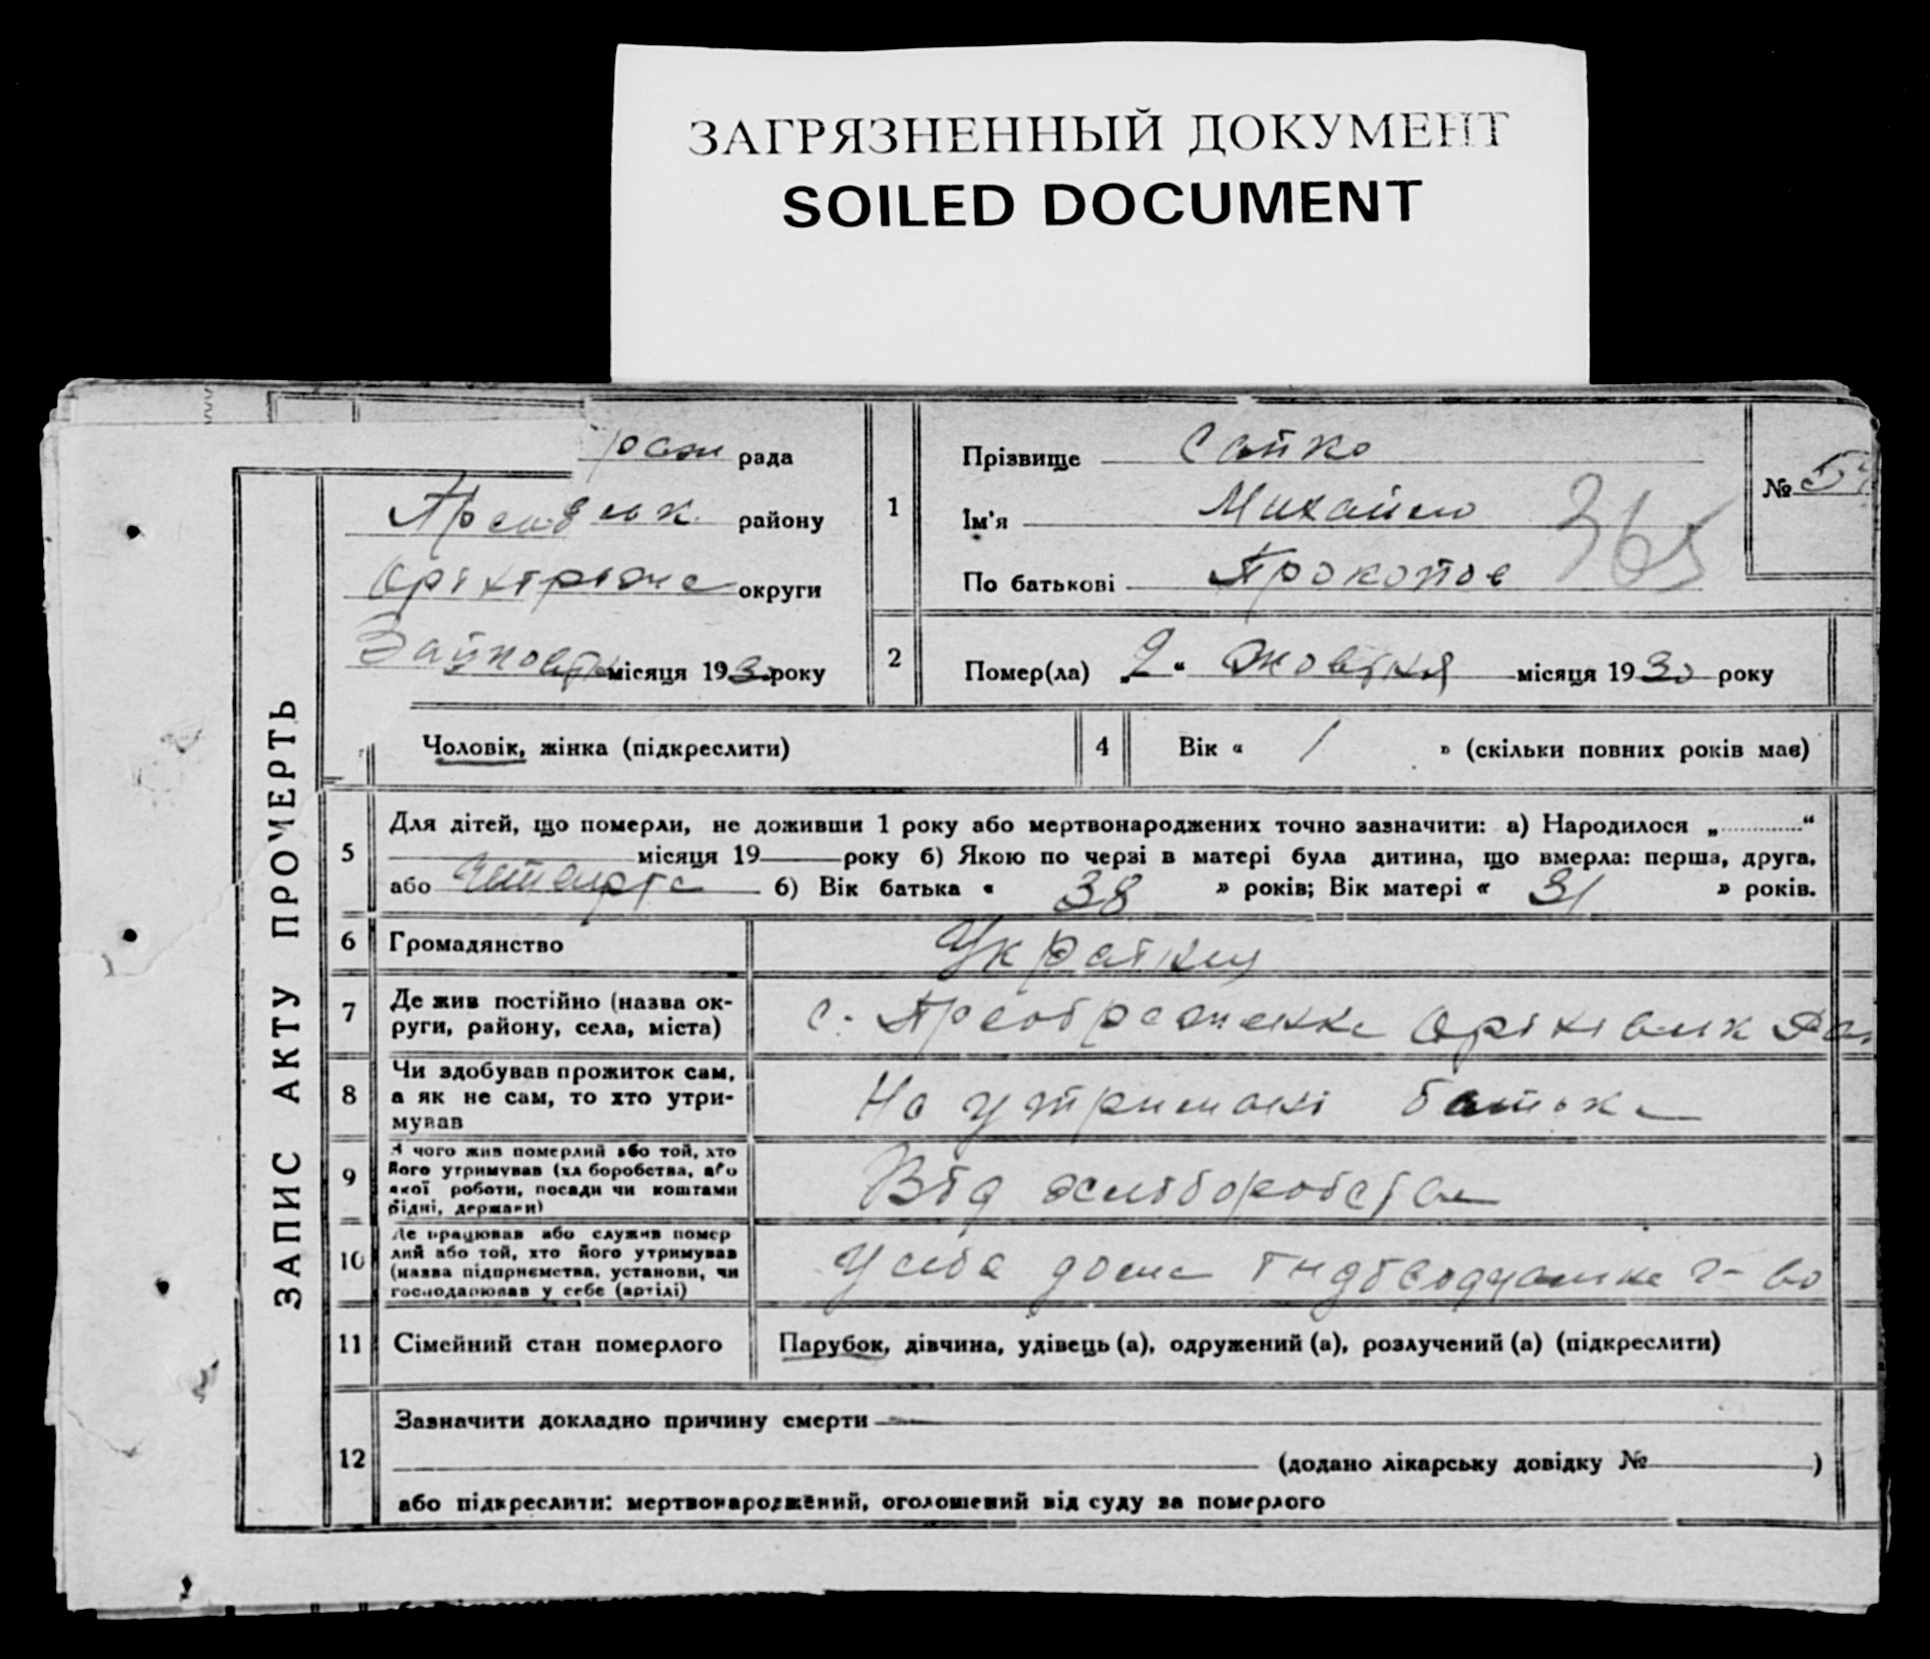 ЗАГРЯЗНЕННЫЙ ДОКУМЕНТ
SOILED DOCUMENT
рада
району
округи
місяця 1930 року
ЗАПИС АКТУ ПРО СМЕРТЬ
1
Прізвище Сайко
Ім'я Михайло
По батькові Прокопов
365
№ 54
2
Помер(ла) „2“ Жовтня місяця 1930 року
Чоловік, жінка (підкреслити)
4
Вік « 1 » (скільки повних років мав)
5
Для дітей, що померли, не доживши 1 року або мертвонароджених точно зазначити: а) Народилося „ “
місяця 19 року б) Якою по черзі в матері була дитина, що вмерла: перша, друга,
або четверта б) Вік батька « 38 » років; Вік матері « 31 » років.
6 Громадянство
7 Де жив постійно (назва ок-
руги, району, села, міста)
с. Преображенка Оріхівськ
8 Чи здобував прожиток сам,
а як не сам, то хто утри-
мував
На утримані батька
9 З чого жив померлий або той, хто
його утримував (хліборобства, або
якої роботи, посади чи коштами
рідні, держави)
Від хліборобства
10 Де працював або служив помер
лий або той, хто його утримував
(назва підприємства, установи, чи
господарював у себе (артілі)
У себе дома г-во
11 Сімейний стан померлого
Парубок, дівчина, удівець (а), одружений (а), розлучений (а) (підкреслити)
12
Зазначити докладно причину смерти
(додано лікарську довідку № )
або підкреслити: мертвонароджений, оголошений від суду за померлого